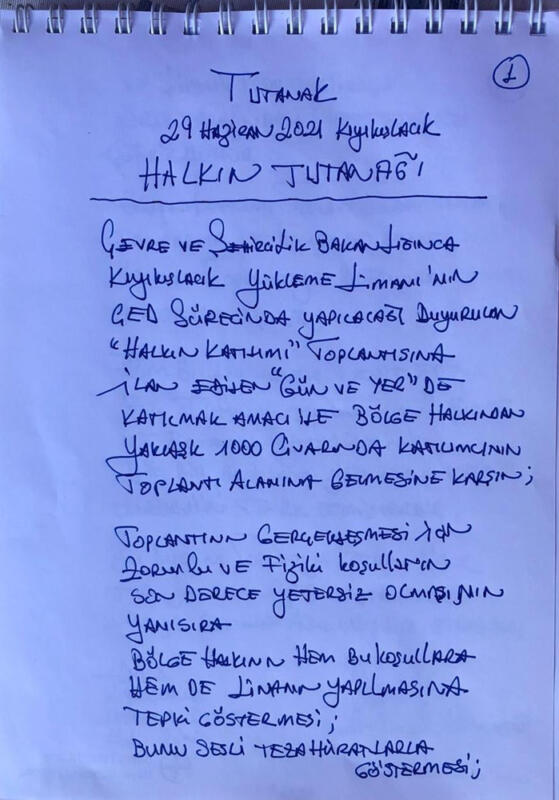 1
TUTANAK
29 HAZİRAN 2021 KIYIKIŞLACIK
HALKIN TUTANAĞI
ÇEVRE VE ŞEHİRCİLİK BAKANLIĞINCA
KIYIKIŞLACIK YÜKLEME LİMANI'NIN
ÇED SÜRECİNDA YAPILACAĞI DUYURULAN
"HALKIN KATILIMI" TOPLANTISINA
İLAN EDİLEN "GÜN VE YER"DE
KATILMAK AMACI İLE BÖLGE HALKINDAN
YAKLAŞIK 1000 CİVARINDA KATILIMCININ
TOPLANTI ALANINA GELMESİNE KARŞIN;
TOPLANTININ GERÇEKLEŞMESİ İÇİN
ZORUNLU VE FİZİKİ KOŞULLARIN
SON DERECE YETERSİZ OLMASININ
YANISIRA
BÖLGE HALKININ HEM BU KOŞULLARA
HEM DE LİMANIN YAPILMASINA
TEPKİ GÖSTERMESİ;
BUNU SESLİ TEZAHÜRATLARLA
GÖSTERMESİ;